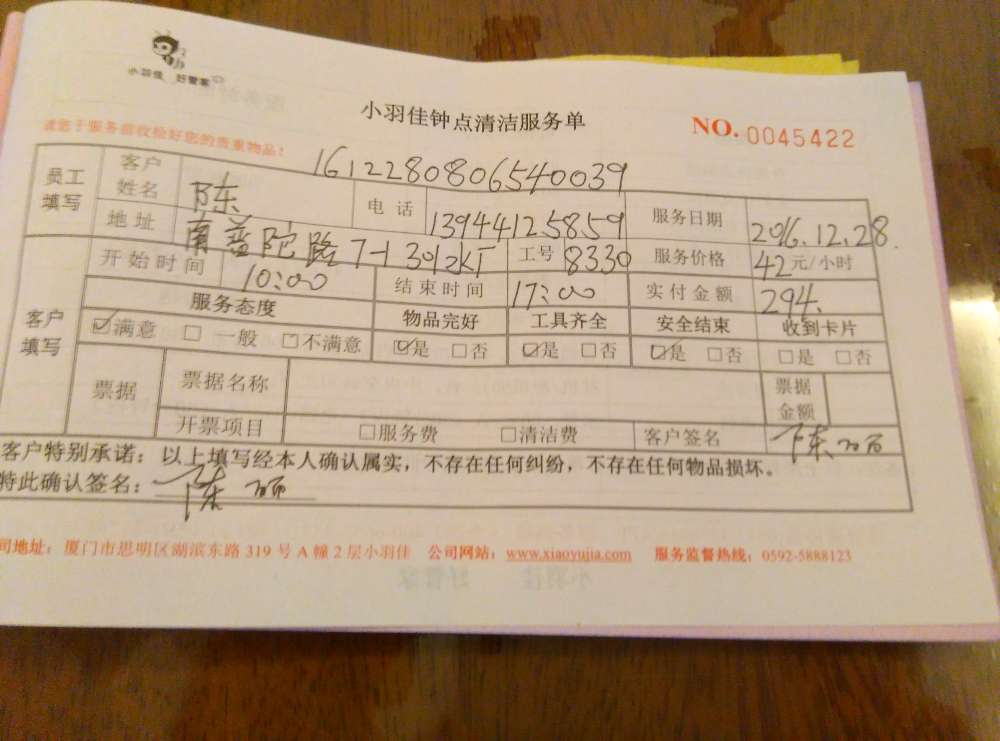 小羽佳 好管家
小羽佳钟点清洁服务单
NO. 0045422
请您于服务前收检好您的贵重物品！
1612280806540039
员工填写 客户姓名 陈 电话 13944125859 服务日期 2016.12.28.
地址 南普陀路7-1 工号 8330 服务价格 42元/小时
客户填写 开始时间 10:00 结束时间 17:00 实付金额 294.
服务态度 物品完好 工具齐全 安全结束 收到卡片
☑满意 □一般 □不满意 ☑是 □否 ☑是 □否 ☑是 □否 □是 □否
票据 票据名称 票据金额
开票项目 □服务费 □清洁费 客户签名 陈丽
客户特别承诺：以上填写经本人确认属实，不存在任何纠纷，不存在任何物品损坏。
特此确认签名：陈丽
司地址：厦门市思明区湖滨东路 319 号 A 幢 2 层小羽佳 公司网站：www.xiaoyujia.com 服务监督热线：0592-5888123